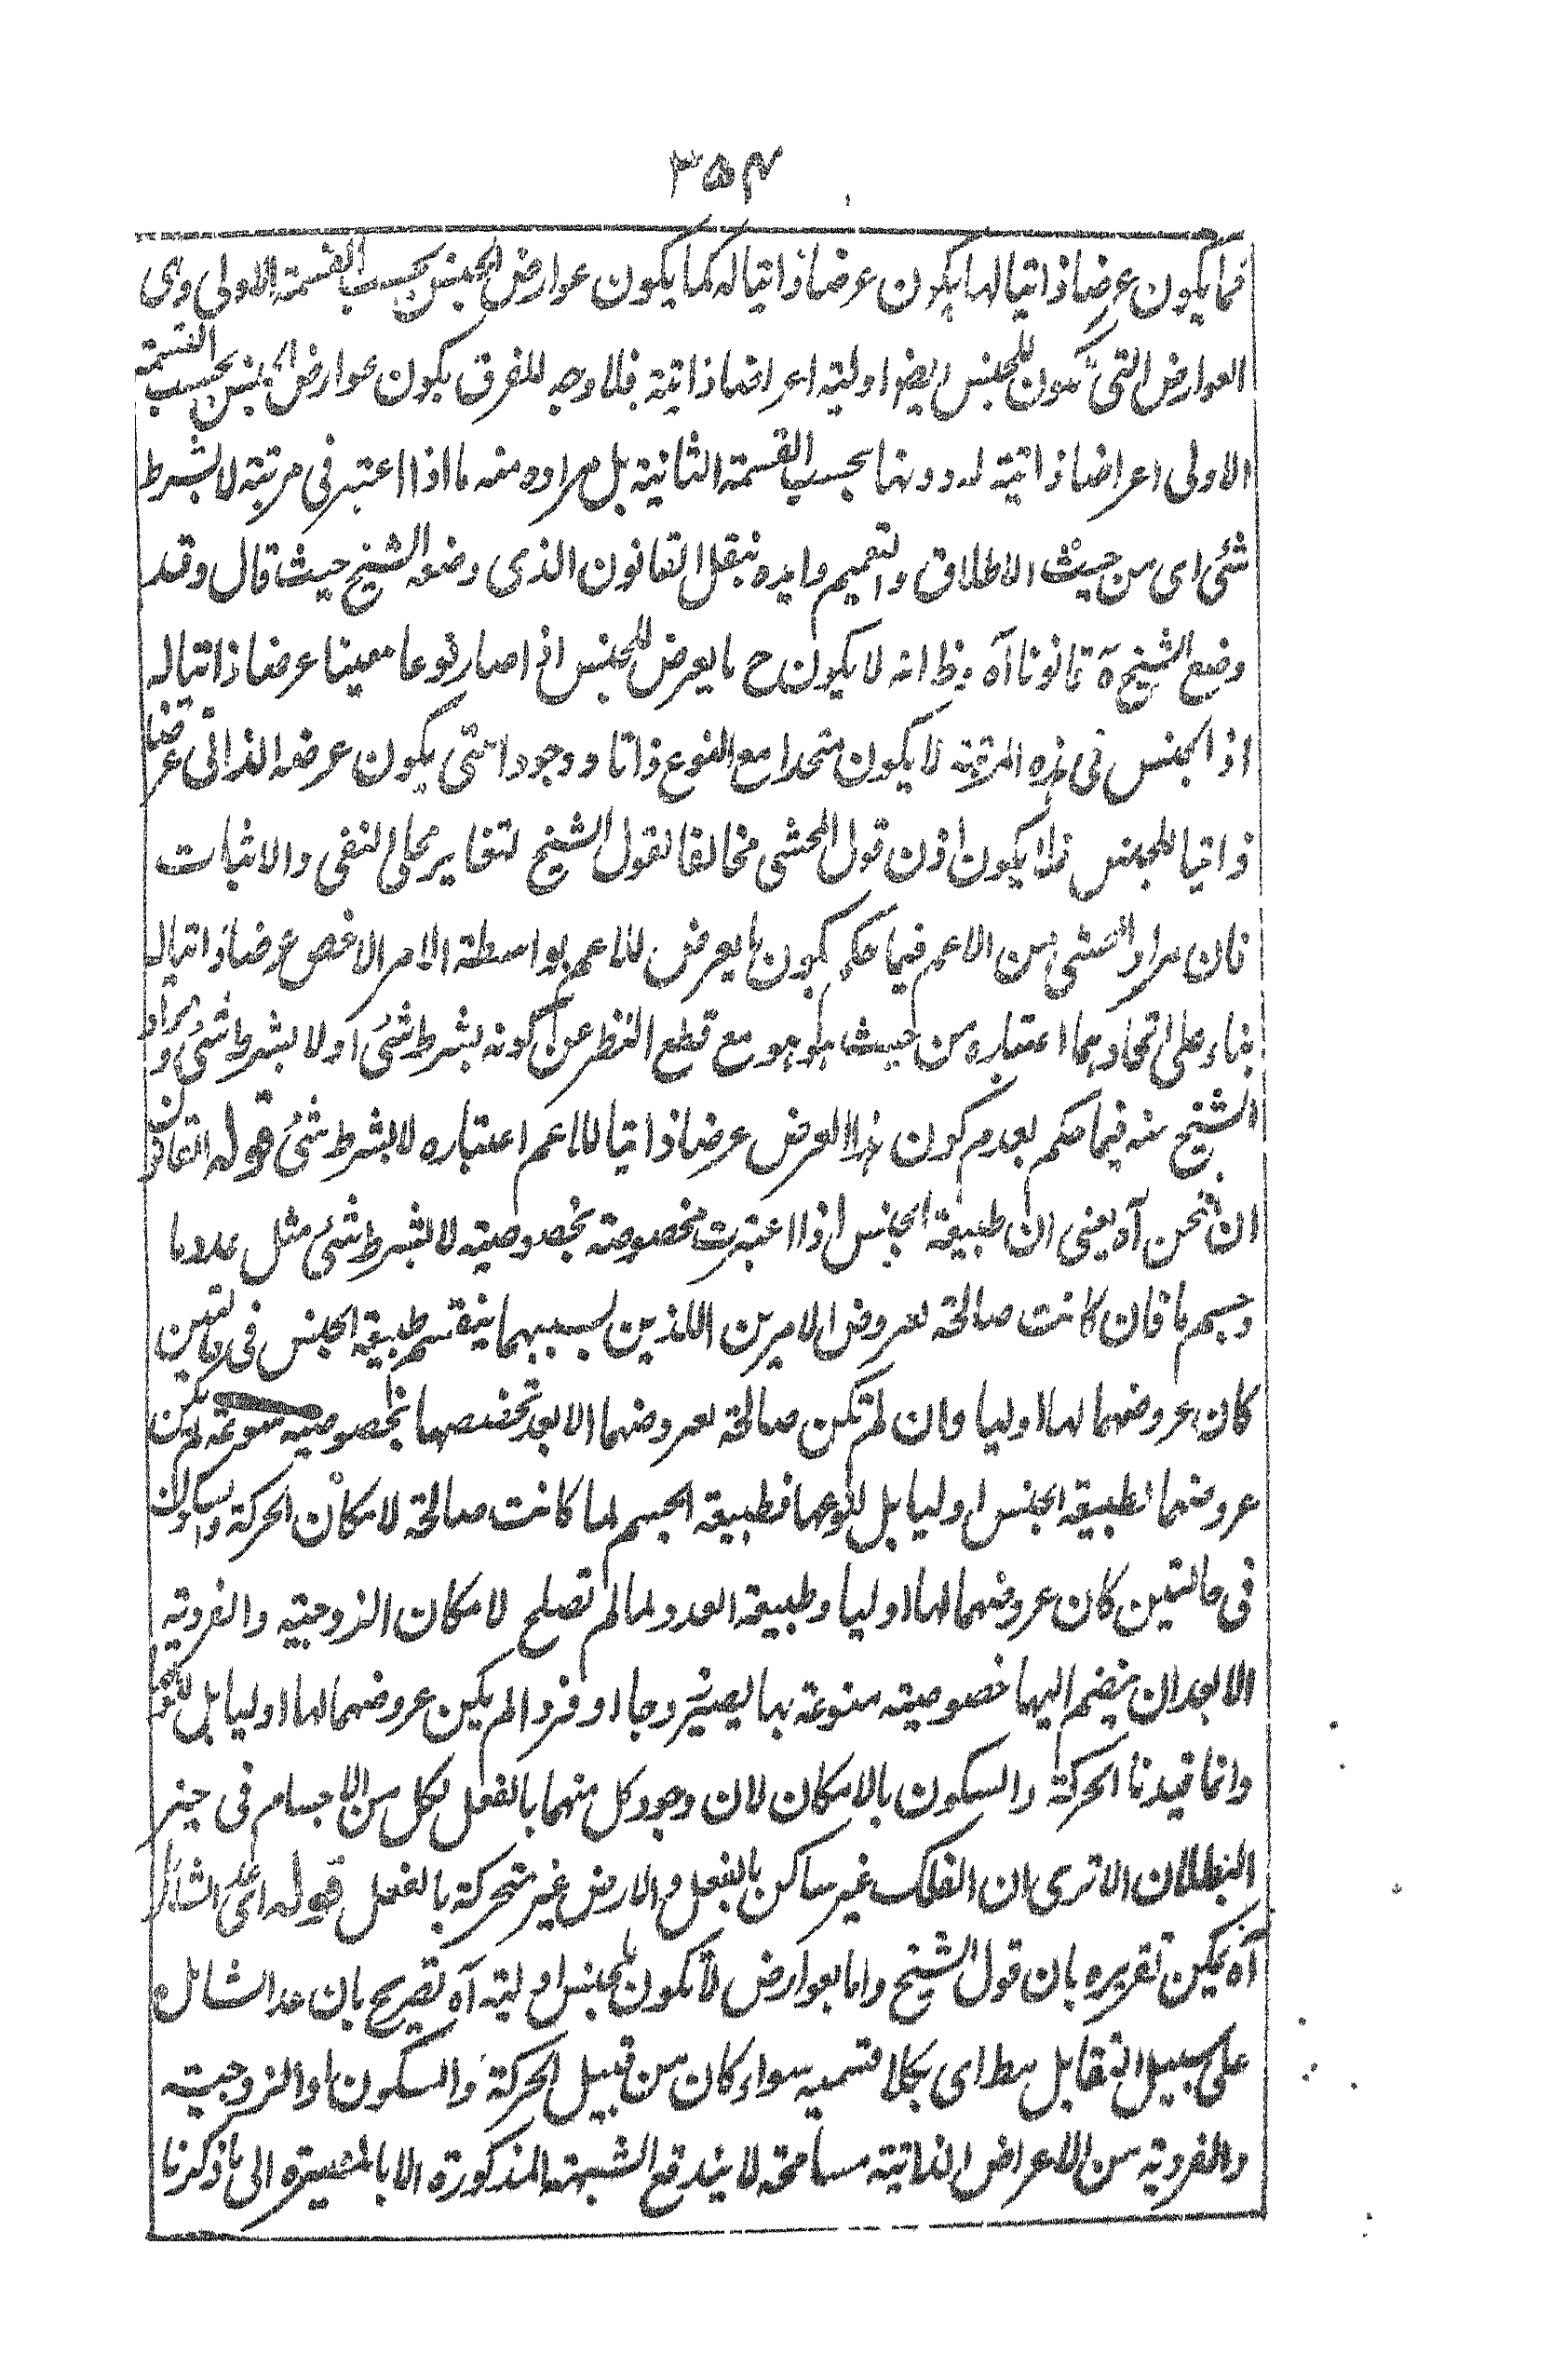 ۳۵۴
فما یکون عرضا ذاتیا لها یکون عرضا ذاتیا له کما یکون عوارض الجنس بحسب القسمة الاولی وہی
العوارض التی تکون للجنس ایضا اولیة اعراضا ذاتیة فلا وجه للفرق بکون عوارض الجنس بحسب القسمة
الاولی اعراضا ذاتیة له دونها بحسب القسمة الثانیة بل مراده منه ما اذا اعتبر فی مرتبة لا بشرط
شئ ای من حیث الاطلاق والتعمیم وایده بنقل القانون الذی وضعه الشیخ حیث قال وقد
وضع الشیخ ة قانونا آه وظ انه لا یکون ح ما یعرض للجنس اذا صار نوعا معینا عرضا ذاتیا له
اذ الجنس فی هذه المرتبة لا یکون متحدا مع النوع ذاتا ووجودا حتی یکون عرضه الذاتی عرضا
ذاتیا للجنس فلا یکون اذن قول المحشی مخالفا لقول الشیخ لتغایر محلی النفی والاثبات
فان مراد المحشی من الاعم فیما حکم بکون ما یعرض للاعم بواسطة الامر الاخص عرضا ذاتیا له
بناء علی اتحادهما اعتباره من حیث هو هو مع قطع النظر عن کونه بشرط شئ او لا بشرط شئ ومراد
الشیخ منه فیما حکم بعدم کون هذا العرض عرضا ذاتیا للاعم اعتباره لا بشرط شئ قوله القانون
ان نمحن آه یعنی ان طبیعة الجنس اذا اعتبرت مخصوصة بخصوصیة لا بشرط شئ مثل عدد ما
وجسم ما فان کانت صالحة لعروض الامرین اللذین بسببهما ینقسم طبیعة الجنس فی حالتین
کان عروضهما لها اولیا وان لم تکن صالحة لعروضهما الا بعد تخصصها بخصوصیة منوعة لم یکن
عروضهما لطبیعة الجنس اولیا بل لنوعها فطبیعة الجسم لما کانت صالحة لامکان الحرکة والسکون
فی حالتین کان عروضهما لها اولیا وطبیعة العدد لما لم تصلح لامکان الزوجیة والفردیة
الا بعد ان ینضم الیها خصوصیة منوعة بها یصیر زوجا او فردا لم یکن عروضهما لها اولیا بل لنوعها
وانما قیدنا الحرکة والسکون بالامکان لان وجود کل منهما بالفعل لکل من الاجسام فی حیز
البطلان الا تری ان الفلک غیر ساکن بالفعل والارض غیر متحرکة بالفعل قوله اعلی الشامل
آه یمکن تقریره بان قول الشیخ واما بعوارض لا تکون للجنس اولیة آه تصریح بان عد الشامل
علی سبیل التقابل مط ای بکلا قسمیه سواء کان من قبیل الحرکة والسکون او الزوجیة
والفردیة من الاعراض الذاتیة مسامحة لا یندفع الشبهة المذکورة الا بالمصیرة الی ما ذکرنا